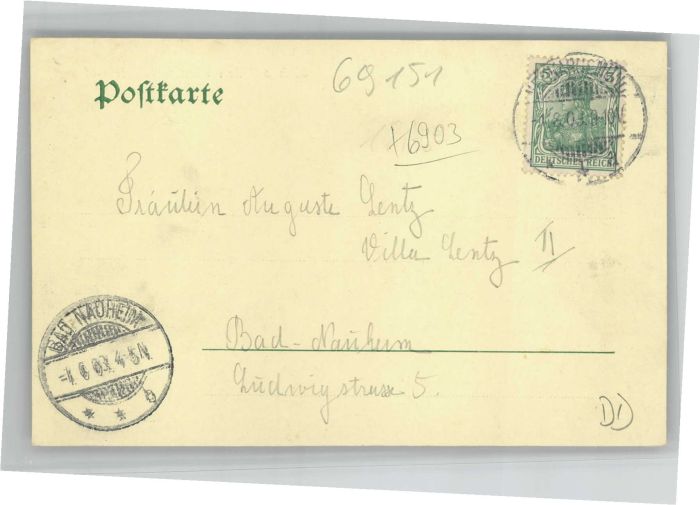 Postkarte
69151
+6903
5 5
DEUTSCHES REICH
Fräulein Auguste Lentz
Villa Lentz II
Bad-Nauheim
Ludwigstrasse 5.
BAD-NAUHEIM
6 03 4-5N
* * b
DD